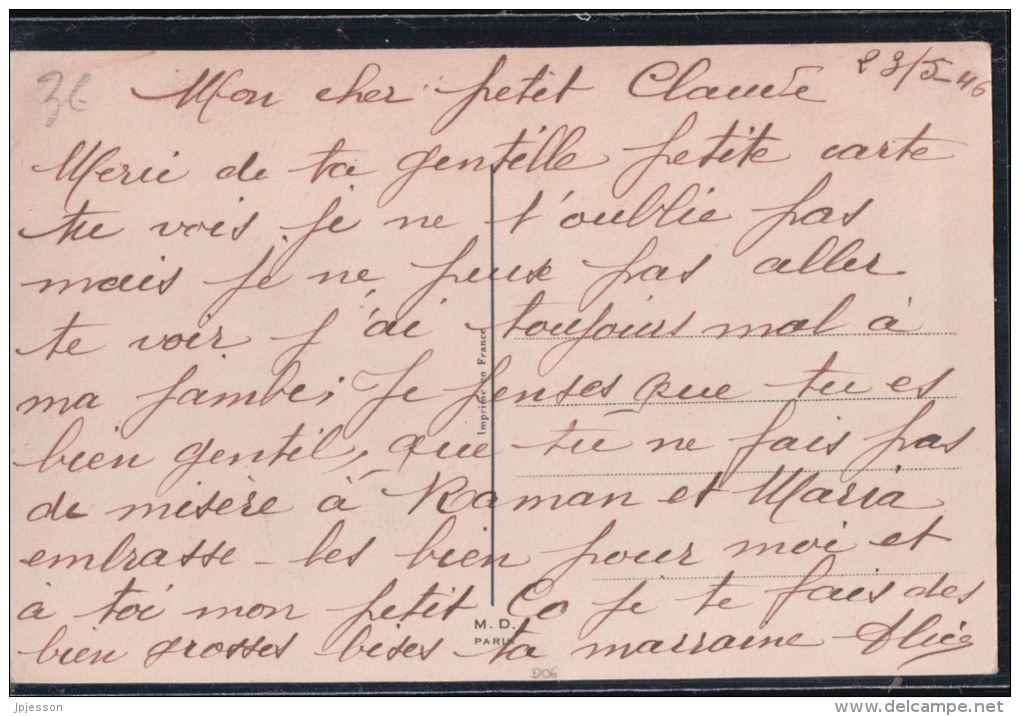 3€
23/5 46
Mon cher petit Claude
Merci de ta gentille petite carte
tu vois je ne t'oublie pas
mais je ne peux pas aller
te voir j'ai toujours mal à
ma jambe, Je penses que tu es
bien gentil, que tu ne fais pas
de misère à Maman et Maria
embrasse-les bien pour moi et
à toi mon petit Co je te fais des
bien grosses bises ta marraine Alice
Imprimé en France
M. D.
PARIS
D06
jpjesson
www.delcampe.net